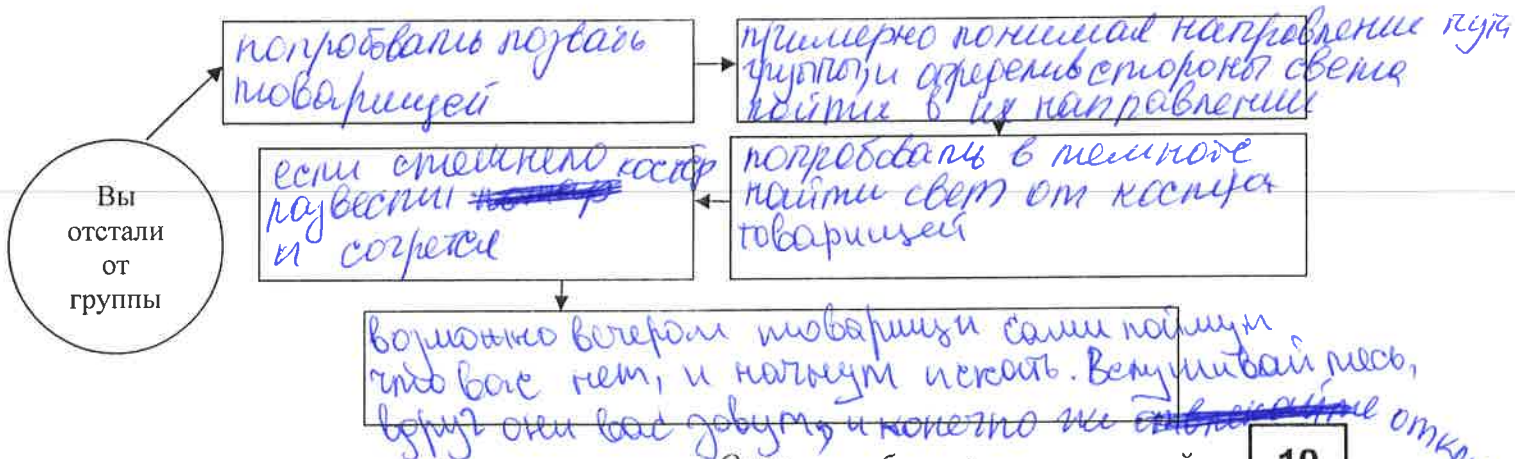 Вы
отстали
от
группы
попробовать позвать
товарищей
примерно понимая направление пути
группы, и определив стороны света
пойти в их направлении
попробовать в темноте
найти свет от костра
товарищей
если стемнело костёр
развести
и согрется
возможно вечером товарищи сами поймут
что вас нет, и начнут искать. Вслушивайтесь,
вдруг они вас зовут, и конечно же
10